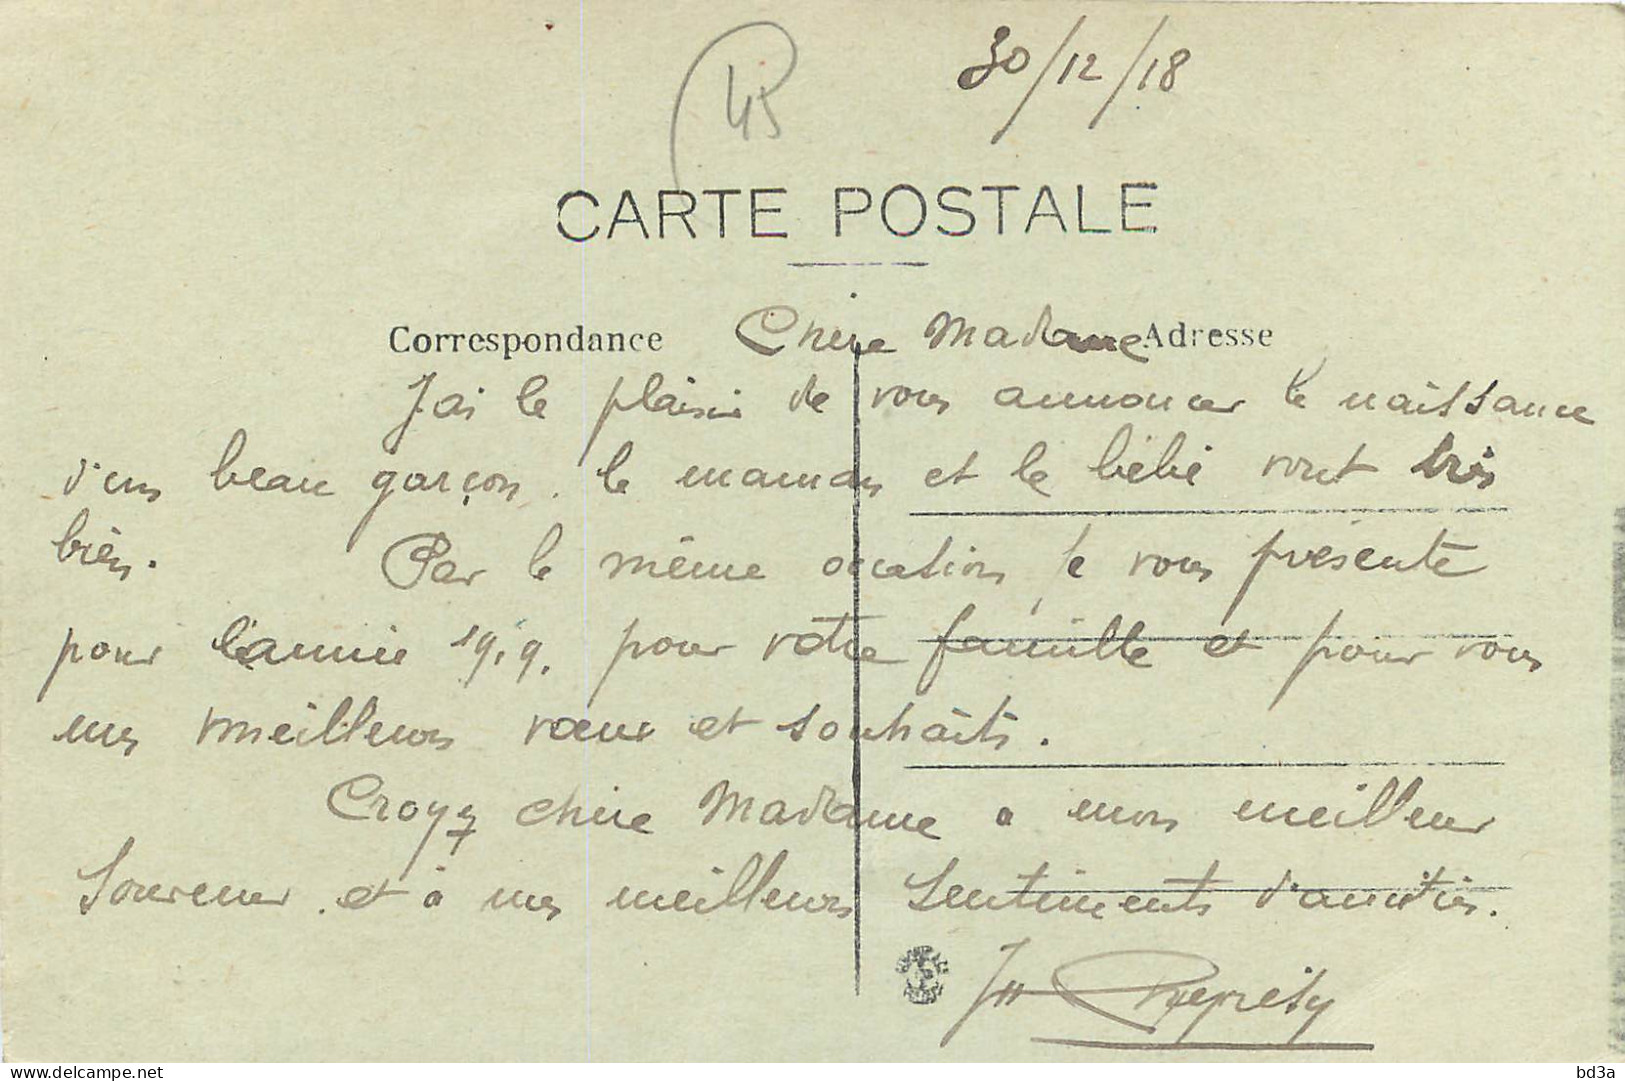 45
30/12/18
CARTE POSTALE
Correspondance
Adresse
Chère Madame
J'ai le plaisir de vous annoncer la naissance
d'un beau garçon. la maman et le bébé vont très
bien. Par la même occasion, je vous présente
pour l'année 1919. pour votre famille et pour vous
mes meilleurs vœux et souhaits.
Croyez chère Madame à mon meilleur
Souvenir et à mes meilleurs sentiments d'amitiés.
bd3a